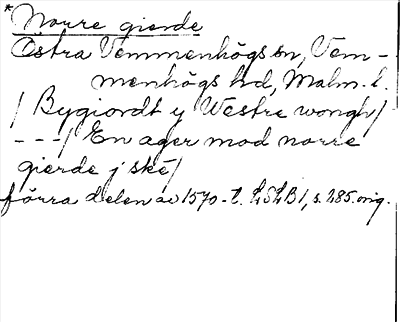 *Norre gierde
Östra Vemmenhögs sn, Vem-
menhögs hd, Malm. l.
/ Bygiordt y Westre wongh/
---/ En ager mod norre
gierde j ske/
förra delen av 1570-t. LSLB1, s. 285. orig.